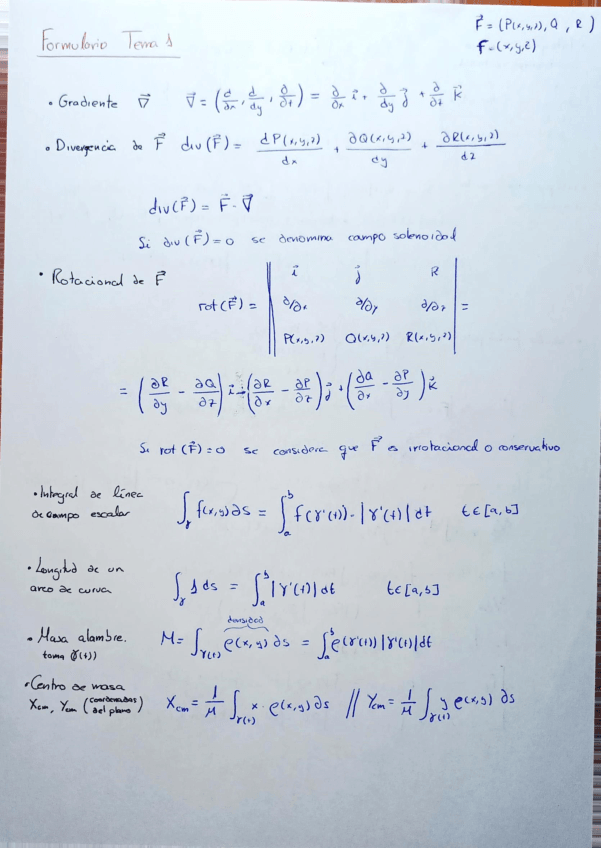 F⃗ = (P(x,y,z), Q, R)
F=(x,y,z)
Formulario Tema 1
• Gradiente ∇⃗ ∇⃗ = (d/dx, d/dy, ∂/∂z) = ∂/∂x i⃗ + ∂/∂y j⃗ + ∂/∂z k⃗
• Divergencia de F⃗ div(F⃗) = dP(x,y,z)/dx + ∂Q(x,y,z)/dy + ∂R(x,y,z)/dz
div(F⃗) = F⃗ · ∇⃗
Si div(F⃗)=0 se denomina campo solenoidal
• Rotacional de F⃗
i⃗ j⃗ R
rot(F⃗) = ∂/∂x ∂/∂y ∂/∂z =
P(x,y,z) Q(x,y,z) R(x,y,z)
= (∂R/∂y - ∂Q/∂z) i⃗ - (∂R/∂x - ∂P/∂z) j⃗ + (∂Q/∂x - ∂P/∂y) k⃗
Si rot(F⃗)=0 se considera que F⃗ es irrotacional o conservativo
• Integral de línea
de campo escalar ∫γ f(x,y) ds = ∫ₐᵇ f(γ'(t)) · |γ'(t)| dt t∈[a,b]
• Longitud de un
arco de curva ∫γ 1 ds = ∫ₐᵇ |γ'(t)| dt t∈[a,b]
densidad
• Masa alambre. M = ∫γ(t) ρ(x,y) ds = ∫ₐᵇ ρ(γ(t)) |γ'(t)| dt
toma γ(t))
• Centro de masa
Xcm, Ycm (coordenadas del plano) Xcm = 1/M ∫γ(t) x · ρ(x,y) ds // Ycm = 1/M ∫γ(t) y ρ(x,y) ds